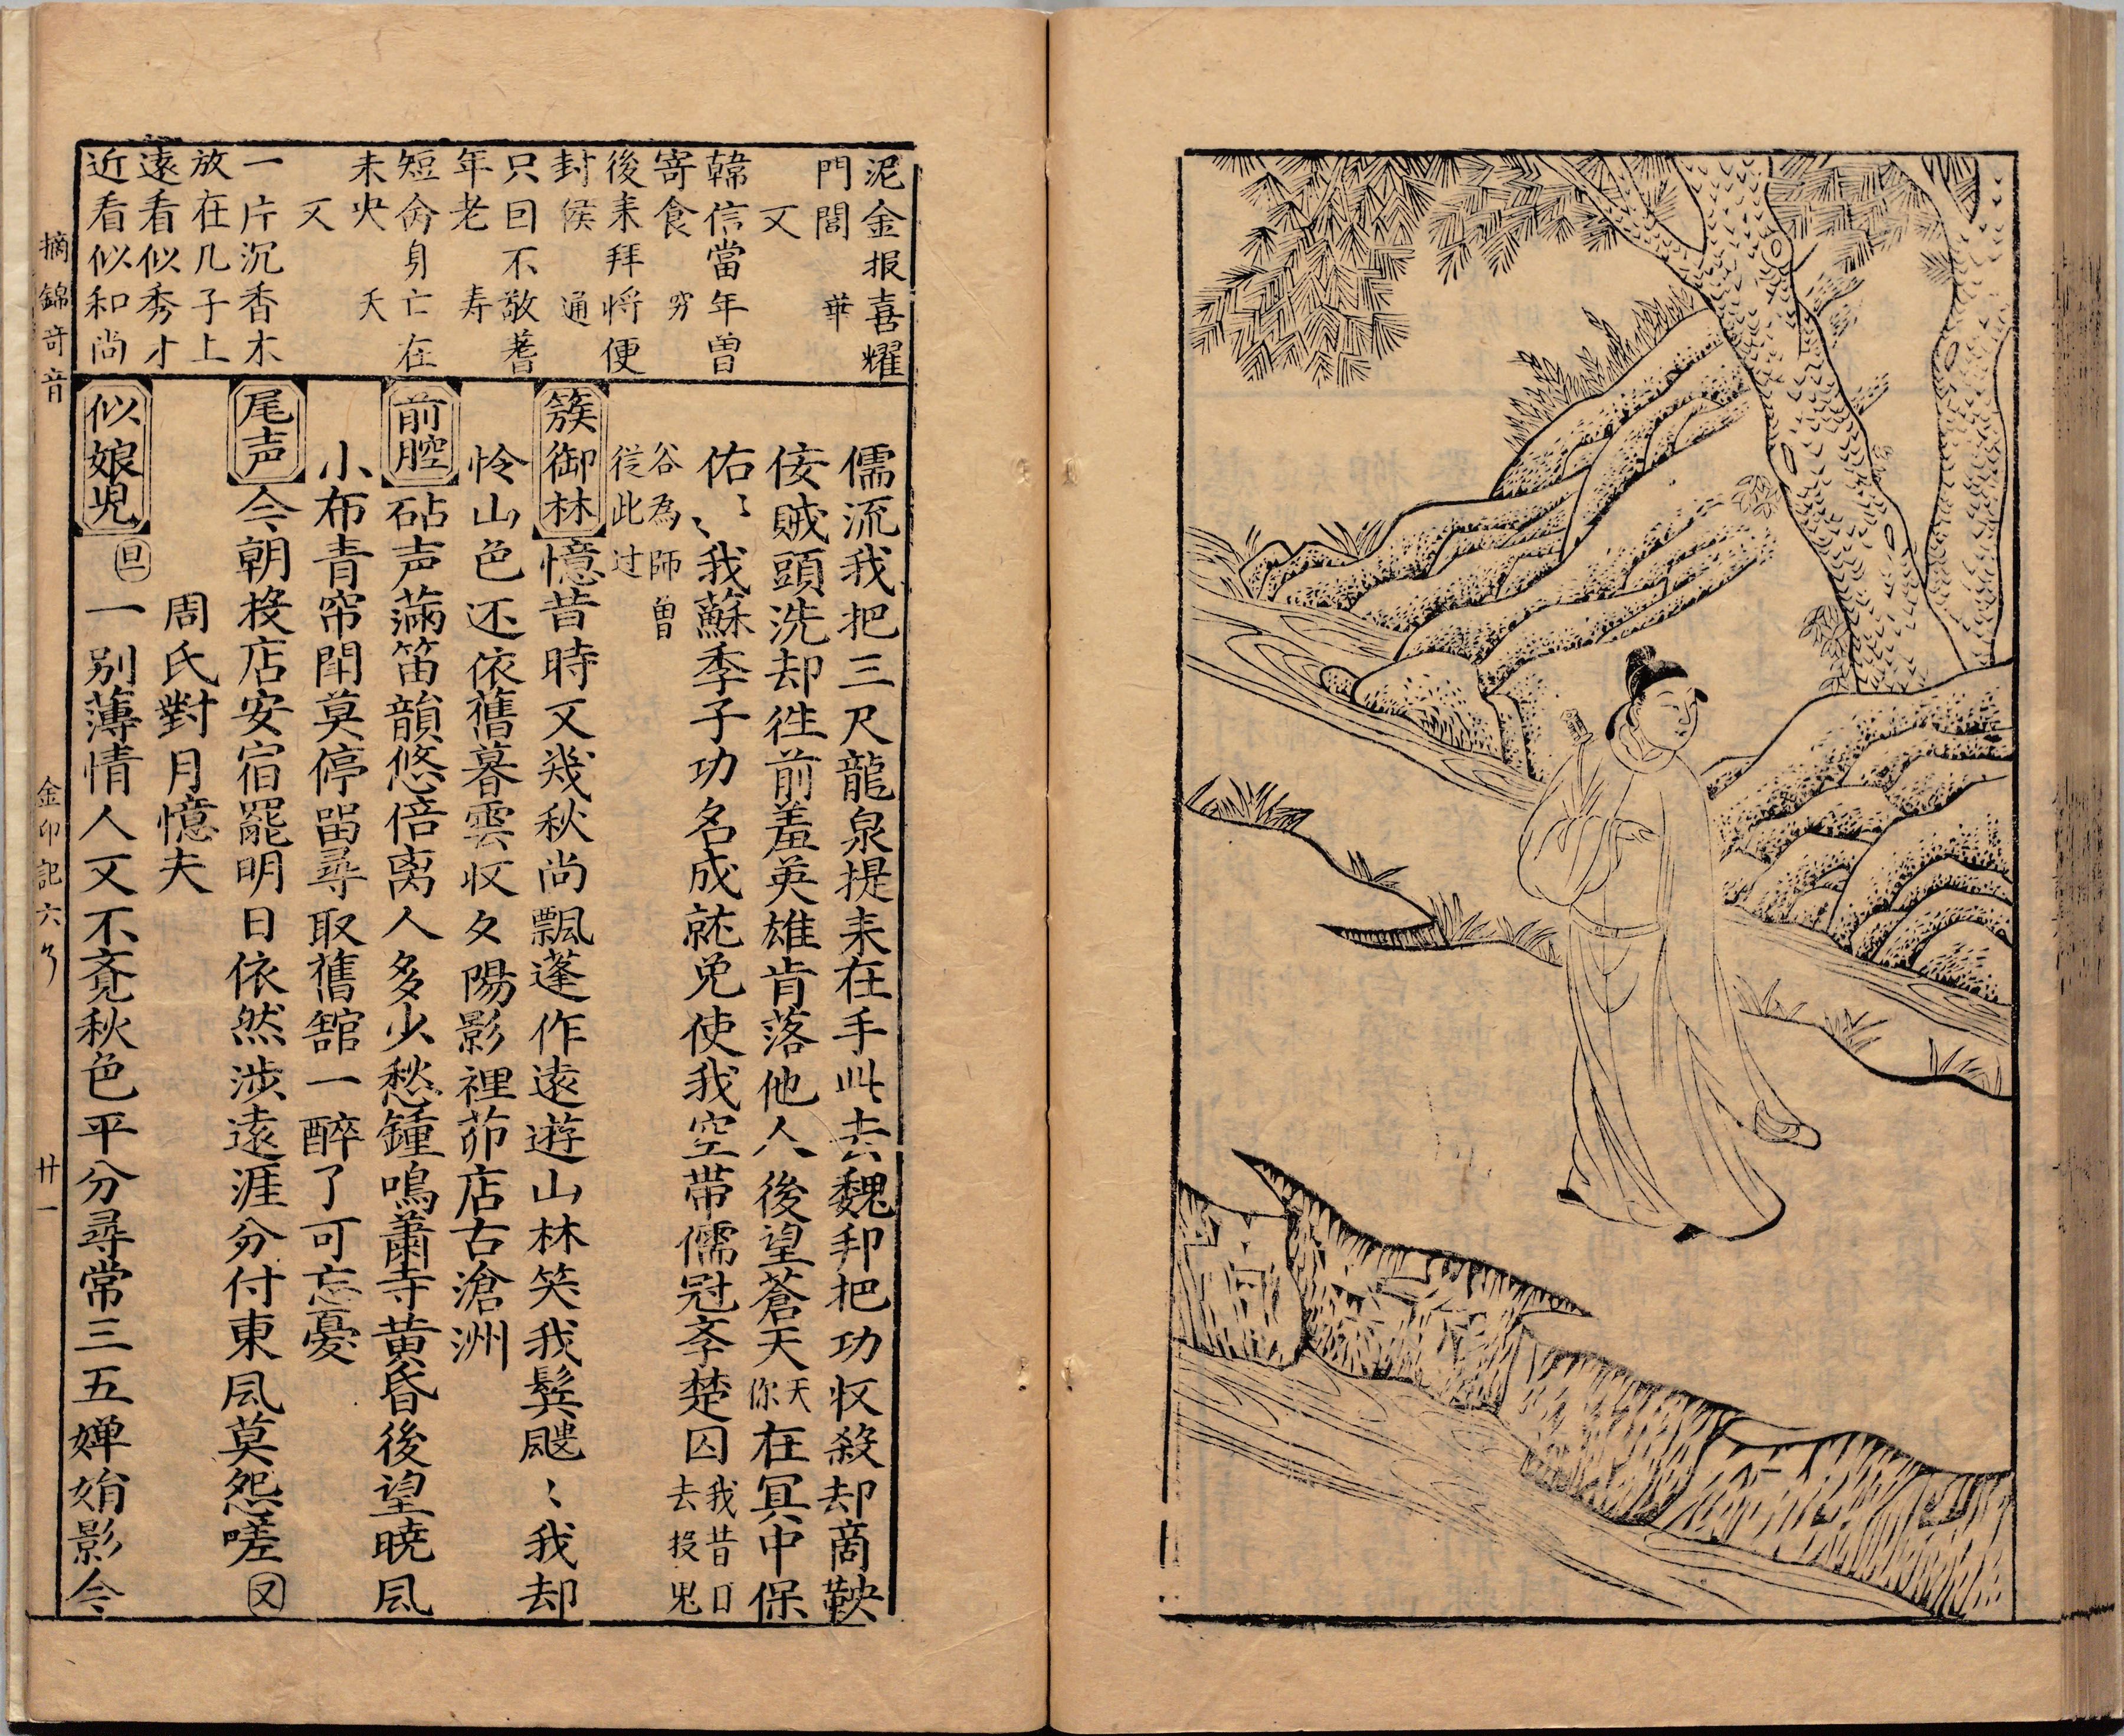 泥金报喜耀
門閭　華
又
韓信當年曽
寄食　穷
後来拜将便
封侯　通
只因不敬耆
年老　寿
短命身亡在
未央　夭
又
一片沉香木
放在几子上
遠看似秀才
近看似和尚
儒流我把三尺龍泉提来在手此去魏邦把功収殺却商鞅
侫賊頭洗却徃前羞英雄肯落他人後望蒼天天你在冥中保
佑〻〻我蘇季子功名成就免使我空带儒冠李楚囚我昔日去投鬼
谷為師曽
従此过
簇御林憶昔時又幾秋尚飄蓬作遠遊山林笑我鬓飕〻我却
怜山色还依舊暮雲収夕陽影裡茆店古滄洲
前腔砧声满笛韻悠倍离人多少愁鐘鳴蕭寺黄昏後望暁风
小布青帘閈莫停留尋取舊舘一醉了可忘憂
尾声今朝投店安宿罷明日依然涉遠涯分付東风莫怨嗟又
周氏對月憶夫
似娘児旦一别薄情人又不竟秋色平分尋常三五婵娟影今
摘錦奇音
金印記六〻
廿一